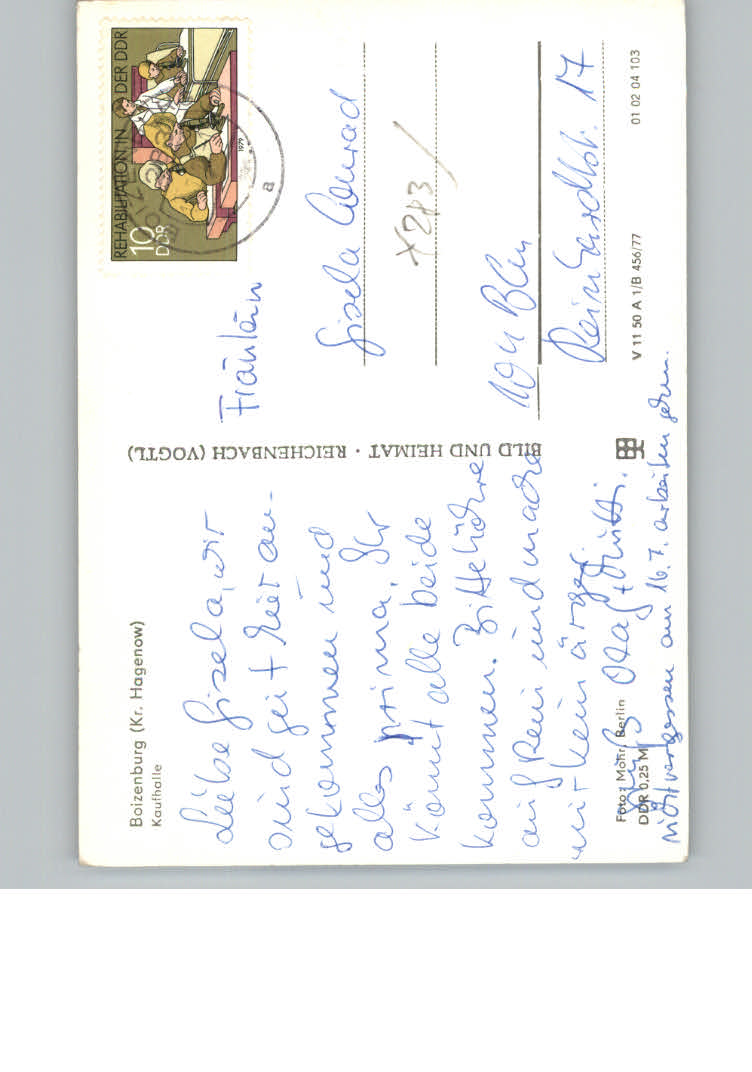 Boizenburg (Kr. Hagenow)
Kaufhalle
Liebe Gisela, wir
sind gut hier an-
gekommen und
alles prima. Ihr
könnt alle beide
kommen. Bitte höre
auf Reni und mache
mit kein ärger.
Gruß Olaf +
Foto: Mohr, Berlin
DDR 0,25 M
Nicht vergessen am 16.7. arbeiten gehen.
BILD UND HEIMAT · REICHENBACH (VOGTL)
REHABILITATION IN DER DDR
10
DDR
1979
a
Fräulein
Gisela Conrad
X283/
104 Bln
Reinhardtstr. 17
V 11 50 A 1/B 456/77
01 02 04 103